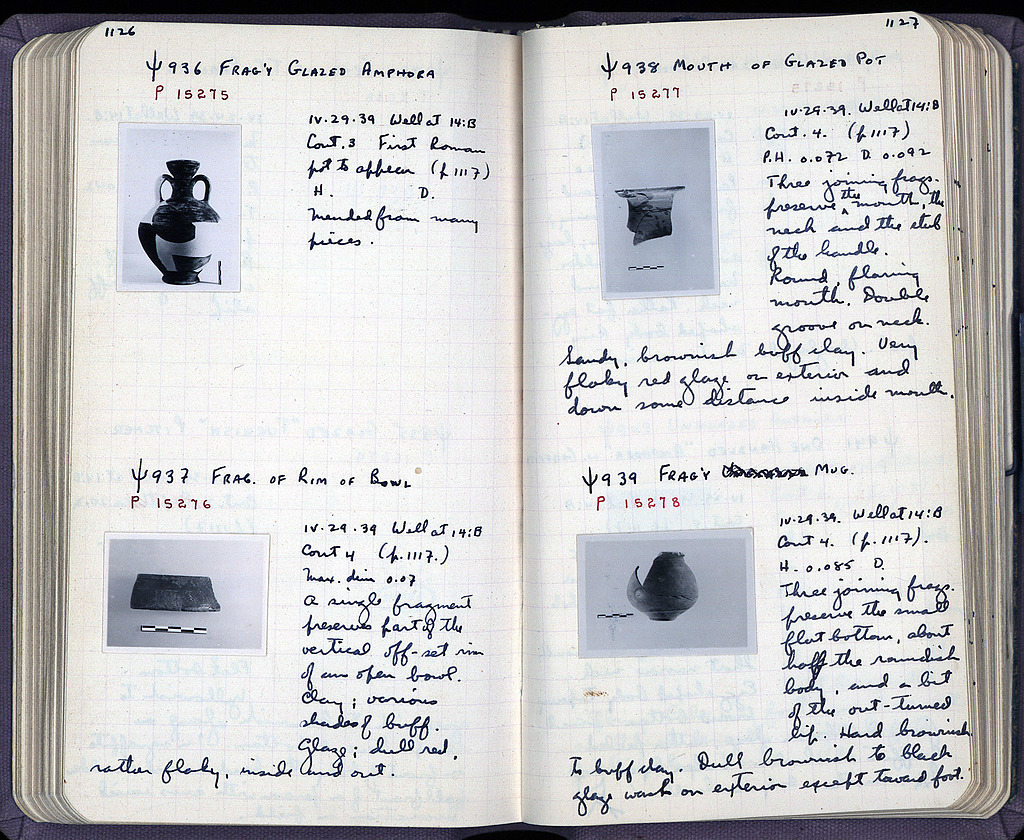 1126
Ψ936 FRAG'Y GLAZED AMPHORA
P 15275
IV.29.39 Well at 14:B
Cont. 3 First Roman
pot to appear (p.1117)
H. D.
Mended from many
pieces.
Ψ937 FRAG. OF RIM OF BOWL
P 15276
IV.29.39 Well at 14:B
Cont 4 (p.1117.)
Max. dim 0.07
A single fragment
preserves part of the
vertical off-set rim
of an open bowl.
Clay; various
shades of buff.
Glaze; dull red,
rather flaky, inside and out.
1127
Ψ938 MOUTH OF GLAZED POT
P 15277
IV.29.39. Well at 14:B
Cont. 4. (p.1117)
P.H. 0.072 D. 0.092
Three joining frags.
preserve the mouth, the
neck and the stub
of the handle.
Round, flaring
mouth. Double
groove on neck.
Sandy, brownish buff clay. Very
flaky red glaze on exterior and
down some distance inside mouth.
Ψ939 FRAG'Y MUG.
P 15278
IV.29.39. Well at 14:B
Cont. 4. (p.1117).
H. 0.085 D.
Three joining frags.
preserve the small
flat bottom, about
half the roundish
body, and a bit
of the out-turned
lip. Hard brownish
to buff clay. Dull brownish to black
glaze wash on exterior except toward foot.